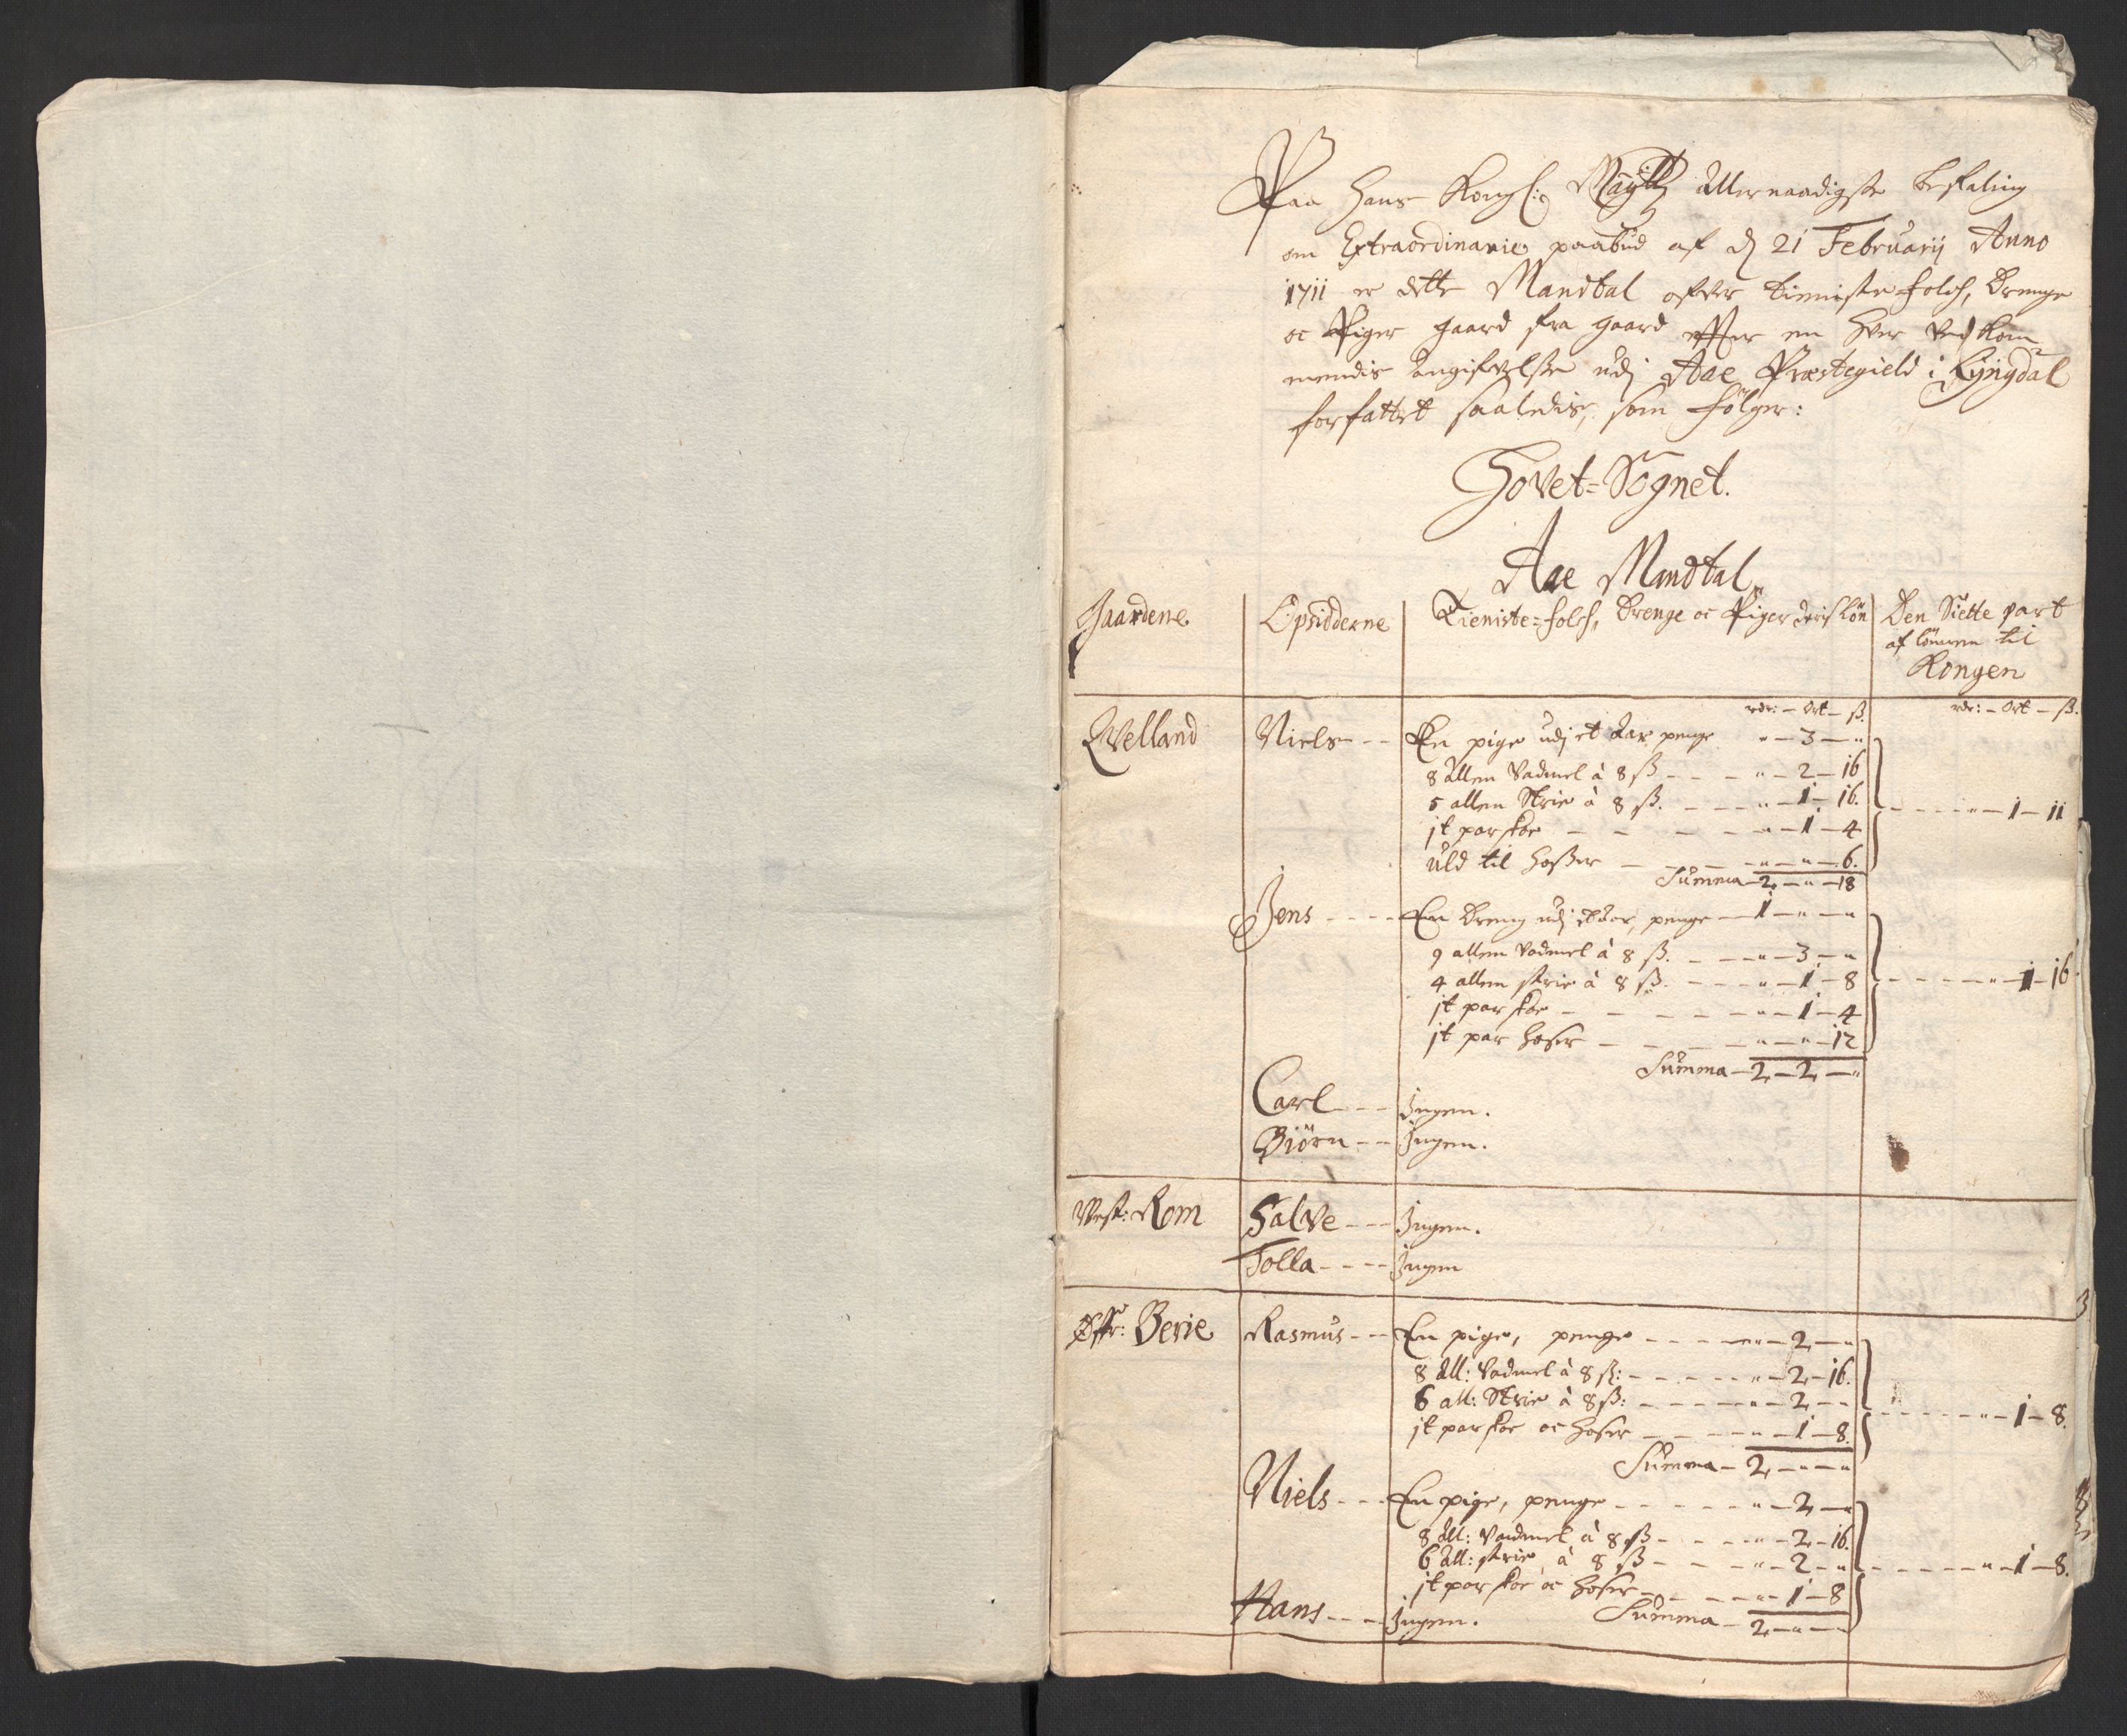 Paa Hans Kongl: Mayttz Allernaadigste befaling
om Extraordinarie paabud af d 21 Februarij Anno
1711 er dette Mandtal ofver tieniste folch, Drenge
oc Piger gaard fra gaard effter en hver ved kom-
mendis angifvelse udj Aae Præstegield i Lyngdal
forfattet saaledis, som følger:
Hovet-Sognet.
Aae Mandtal.
Gaardene Opsidderne Tieniste-folch, Drenge oc Piger deris løn Den Siette part
af lønnen til
Kongen
rdr: - Ort - ß. rdr: - Ort - ß.
Qvelland Niels -- En pige udj et Aar penge " - 3 - "
8 Allen Vadmel à 8 ß - - - " - 2 - 16
5 allen Strie à 8 ß. - - - " - 1 - 16. - - - " - 1 - 11
jt par skoe - - - - - " - 1 - 4
Uld til hosser - - - " - " - 6.
Summa - 2 - " - 18
Jens - - - - En Dreng udj et Aar, penge - 1 - " - "
9 allen Vadmel à 8 ß. - - - " - 3 - "
4 allen strie à 8 ß. - - - " - 1 - 8 - - - " - 1 - 16
jt par skoe - - - - - " - 1 - 4
jt par hoser - - - - " - " - 12
Summa - 2 - 2 - "
Carl - - - Ingen.
Biörn - - Ingen.
Vest: Rom Salve - - - Ingen.
Tolla - - - - Ingen
Øffr: Berie Rasmus - - En pige, penge - - - - " - 2 - "
8 All: Vadmel à 8 ß: - - - - " - 2 - 16.
6 all: Strie à 8 ß: - - - - " - 2 - " - - - - " - 1 - 8.
jt par skoe oc hoser - - - " - 1 - 8.
Summa - 2 - " - "
Niels - - - En pige, penge - - - - " - 2 - "
8 All: Vadmel à 8 ß - - - " - 2 - 16.
6 All: strie à 8 ß - - - " - 2 - " - - - - " - 1 - 8.
jt par skoe oc hoser - - - " - 1 - 8
Hans - - - Ingen. Summa - 2 - " - "